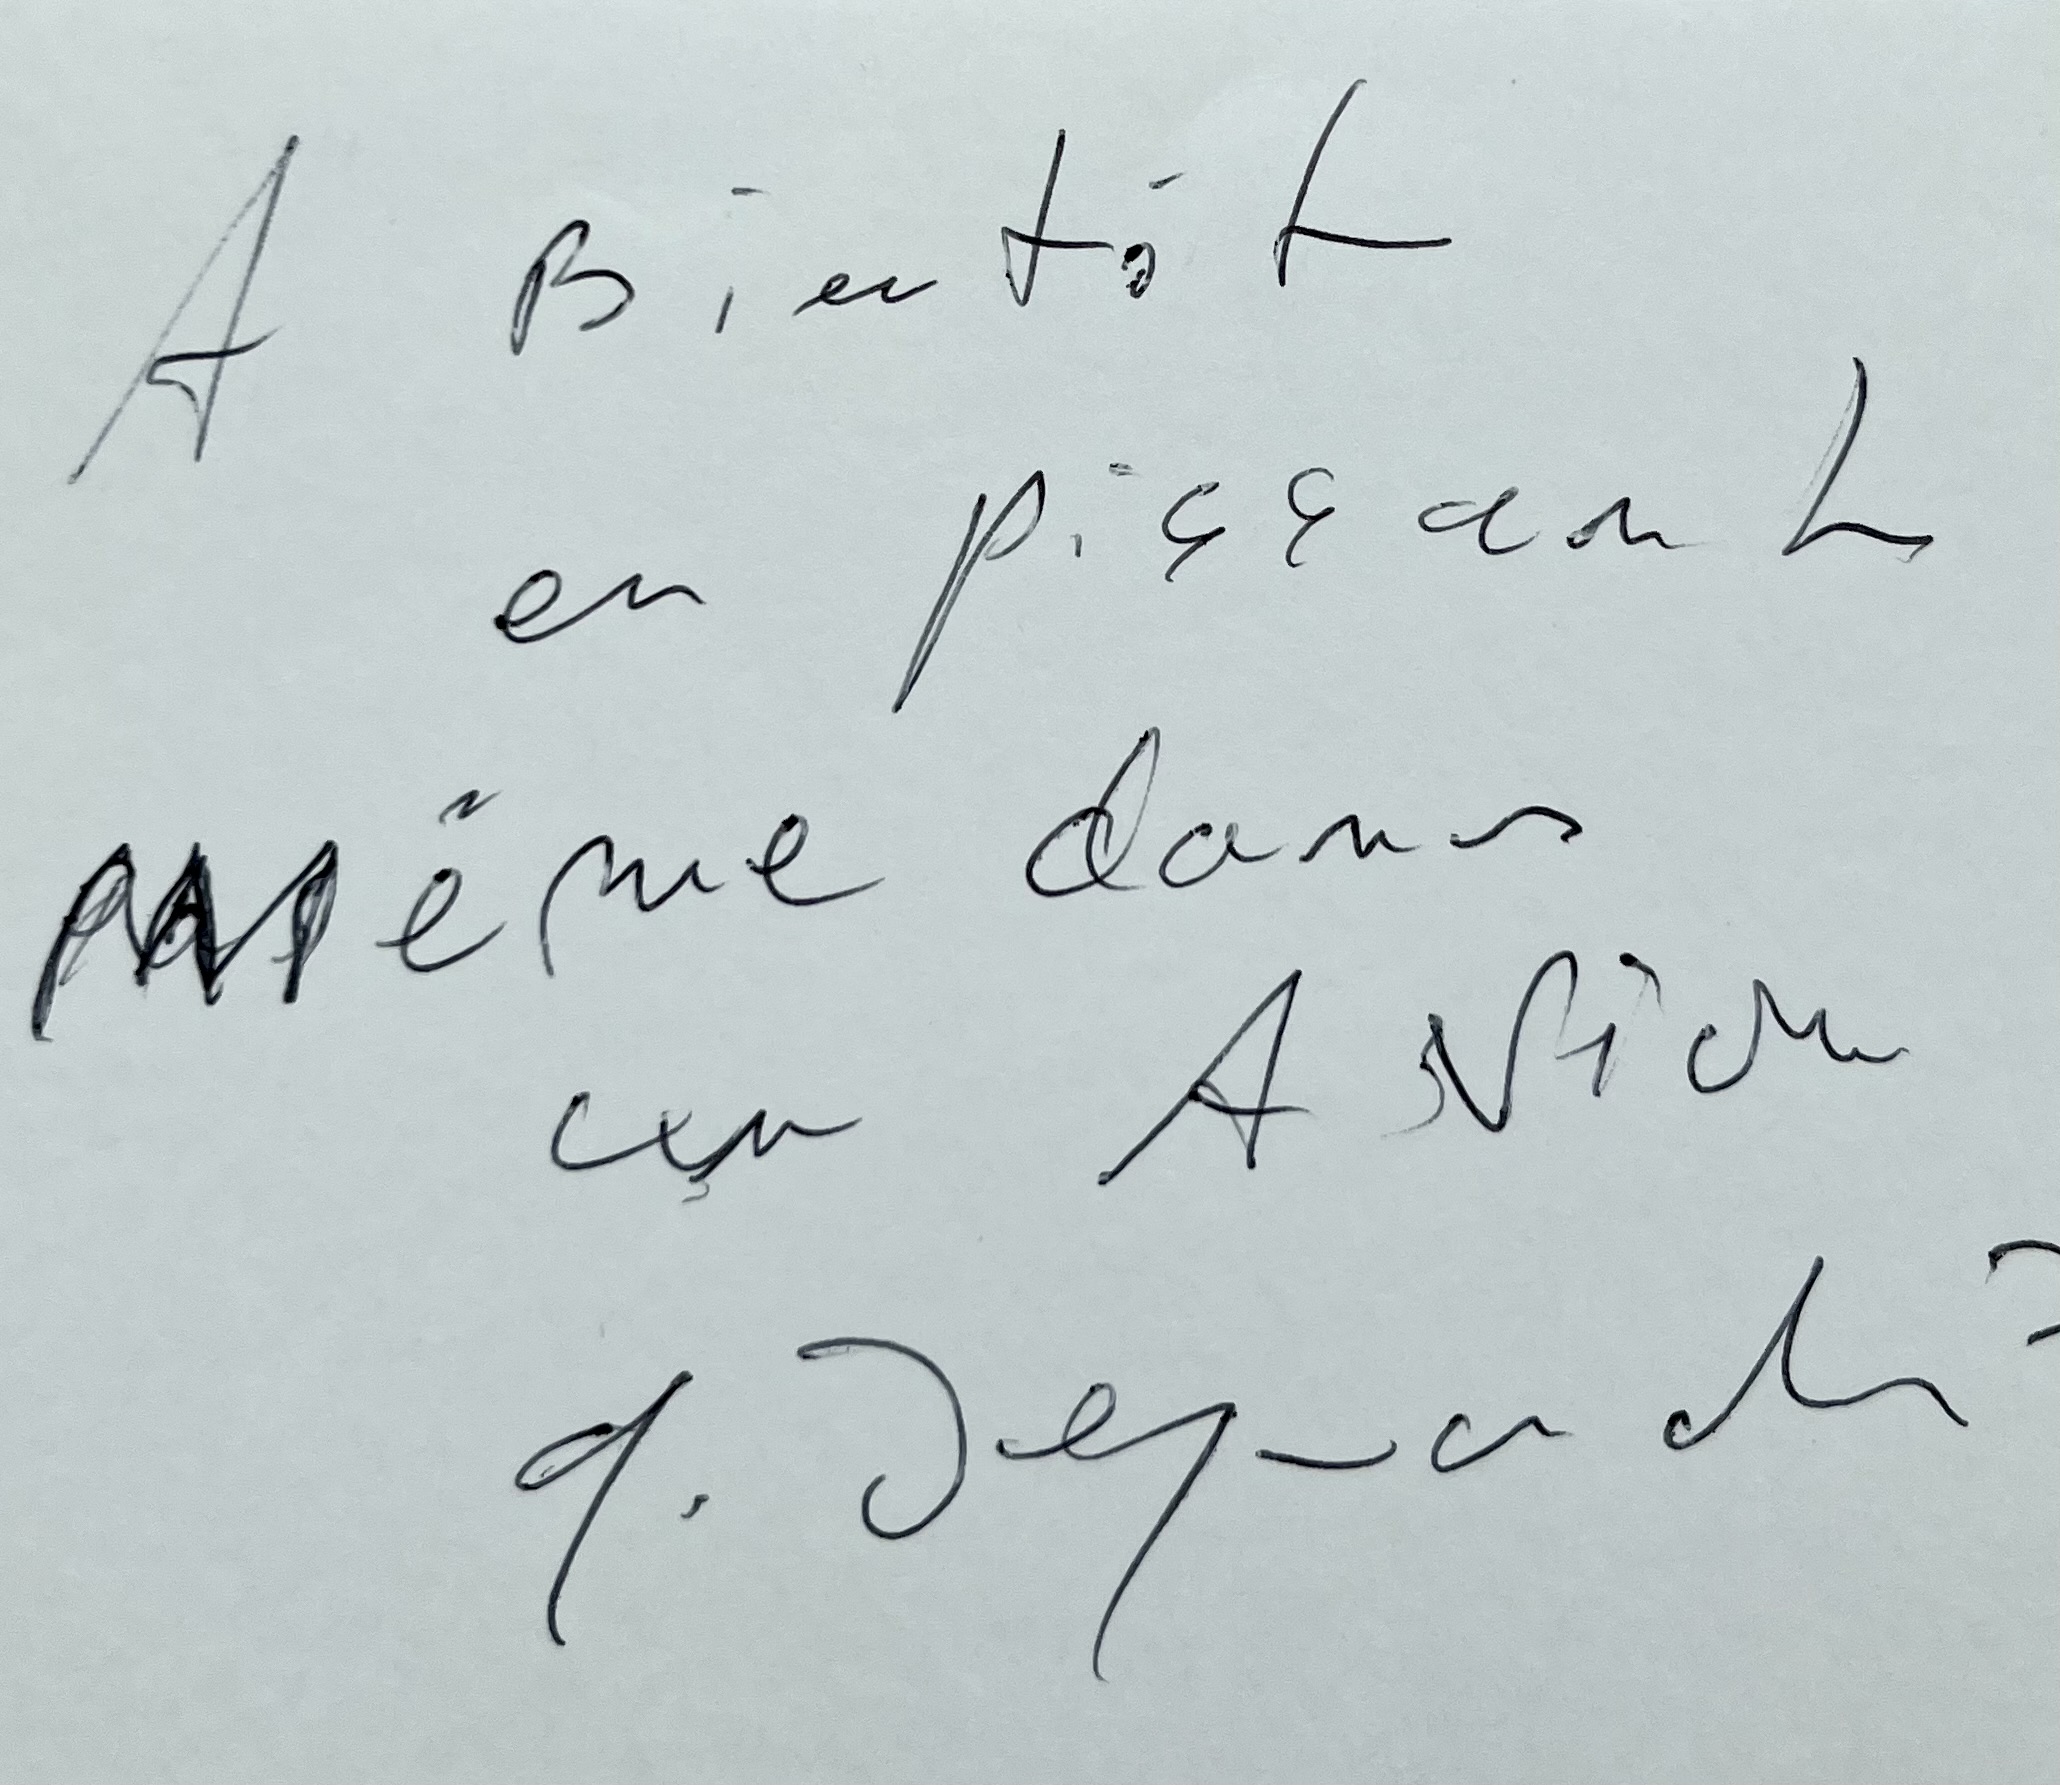 A Bientôt
en pissant
même dans
un Avion
G. Depardi